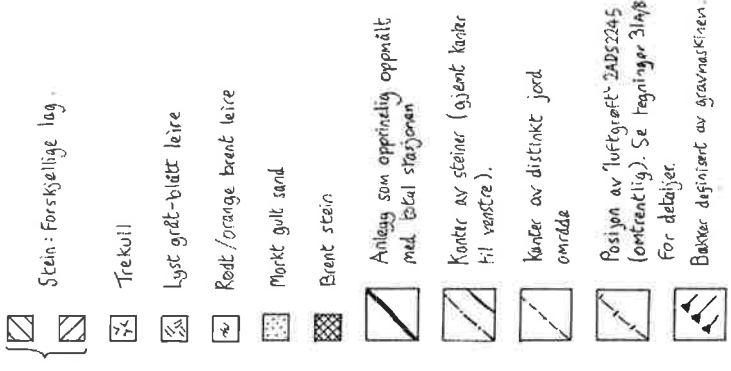 Stein: Forskjellige lag.
Trekull
Lyst gråt-blått leire
Rødt/orange brent leire
Mørkt gult sand
Brent stein
Anlegg som opprinelig oppmålt
med total stasjonen
Kanter av steiner (gjemt kanter
til venstre).
Kanter av distinkt jord
område
Posisjon av "luftgrøft" 2ADS2245
(omtrentlig). Se tegninger 31A/B
For detaljer.
Bakker definisert av gravmaskinen.